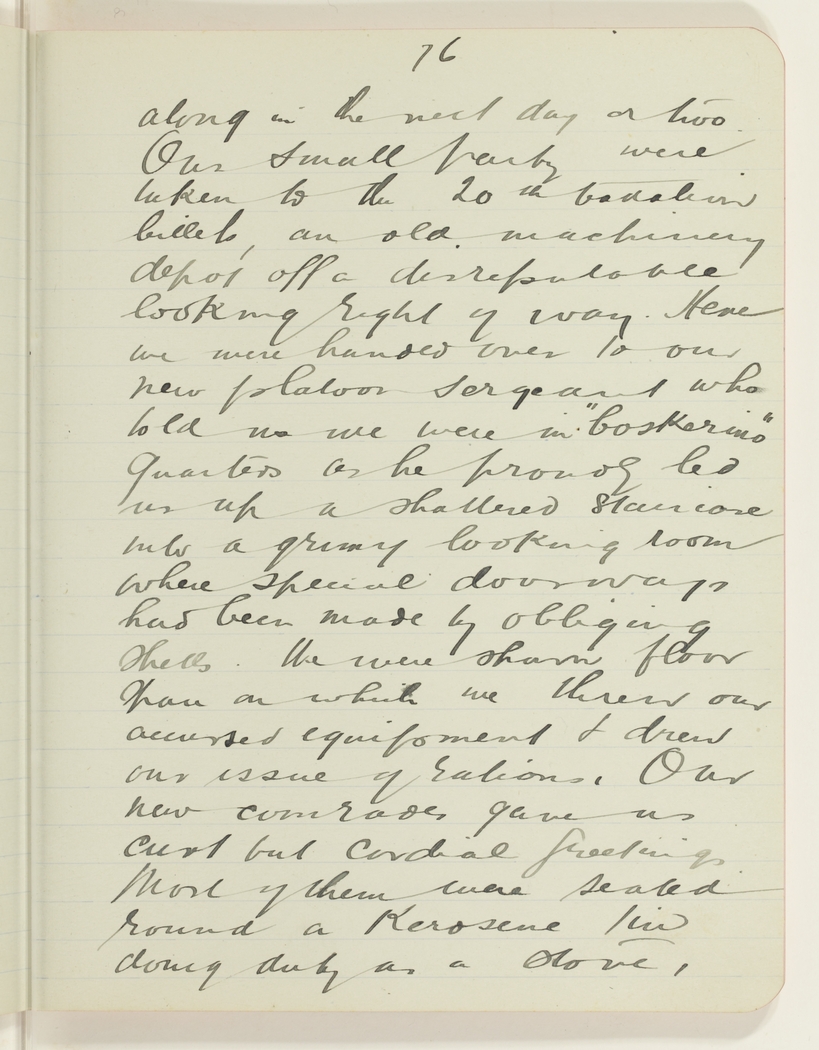 76
along in the next day or two.
Our small party were
taken to the 20th battalion
billets, an old machinery
depot off a disreputable
looking right of way. Here
we were handed over to our
new platoon sergeant who
told us we were in "boskerino"
quarters as he proudly led
us up a shattered staircase
into a grimy looking room
where special doorways
had been made by obliging
shells. We were shown floor
span on which we threw our
accursed equipment & drew
our issue of rations. Our
new comrades gave us
curt but cordial greetings.
Most of them were seated
round a Kerosene tin
doing duty as a stove,